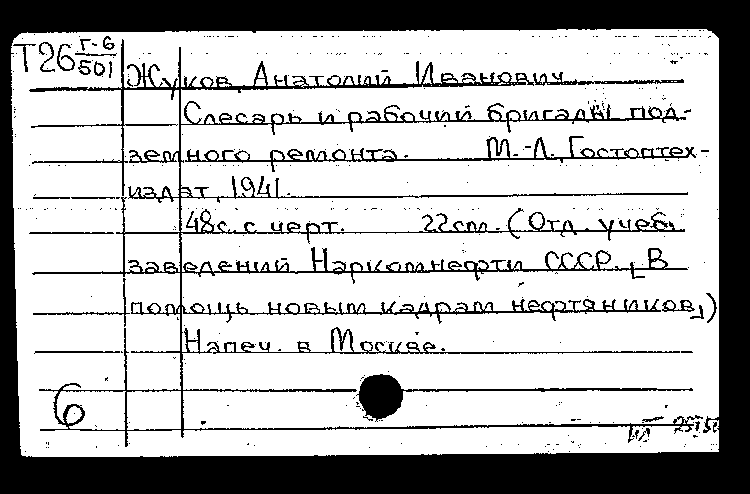 Т26 Г-6/501
Жуков, Анатолий Иванович
Слесарь и рабочий бригады под-
земного ремонта. М.-Л., Гостоптех-
издат, 1941.
48с. с черт. 22см. (Отд. учеб.
заведений Наркомнефти СССР. [В
помощь новым кадрам нефтяников])
Напеч. в Москве.
6